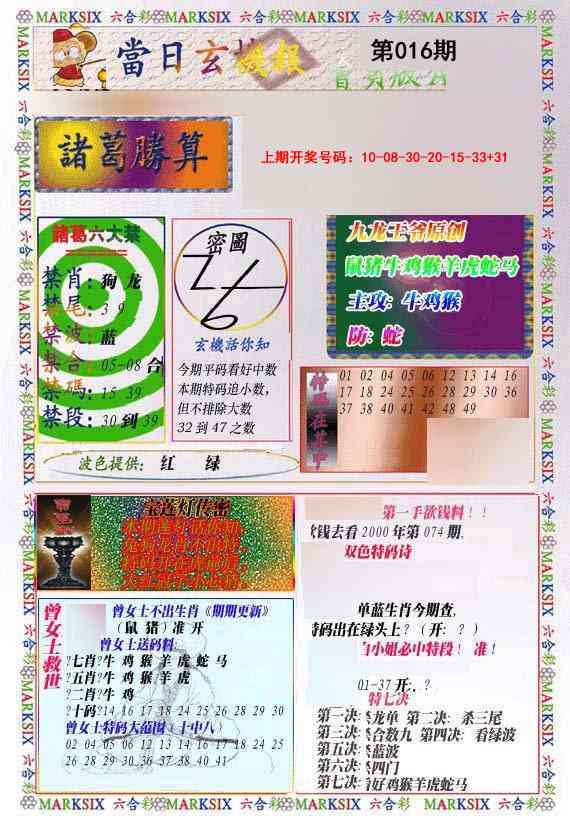 MARKSIX 六合彩 MARKSIX 六合彩 MARKSIX 六合彩 MARKSIX 六合彩
當日玄機報
第016期
諸葛勝算
上期开奖号码：10-08-30-20-15-33+31
諸葛六大禁
禁肖：狗 龙
禁尾：3 9
禁波：蓝
禁合：05-08 合
禁碼：15 39
禁段：30 到 39
密圖
玄機話你知
今期平码看好中数
本期特码追小数，
但不排除大数
32 到 47 之数
九龙王爷原创
鼠猪牛鸡猴羊虎蛇马
主攻：牛鸡猴
防：蛇
特码在其中
01 02 04 05 06 12 13 14 16
17 18 24 25 26 28 29 30 36
37 38 40 41 42 48 49
波色提供： 红 绿
宝莲灯传密
第一手欲钱料！！
欲钱去看 2000 年第 074 期．
双色特码诗
单蓝生肖今期查．
特码出在绿头上？（开：？）
白小姐必中特段！ 准！
01-37 开：．？
特七决
第一决：杀龙单 第二决：杀三尾
第三决：杀合数九 第四决：看绿波
第五决：杀蓝波
第六决：杀四门
第七决：看好鸡猴羊虎蛇马
曾女士救世
曾女士不出生肖《期期更新》
（鼠 猪）准 开
曾女士送码料：
?七肖?牛 鸡 猴 羊 虎 蛇 马
?五肖?牛 鸡 猴 羊 虎
?二肖?牛 鸡
?十码?14 16 17 18 24 25 26 28 29 30
曾女士特码大范围（十中八）
02 04 05 06 12 13 14 16 17 18 24 25
26 28 29 30 36 37 38 40 41
MARKSIX 六合彩 MARKSIX 六合彩 MARKSIX 六合彩 MARKSIX 六合彩